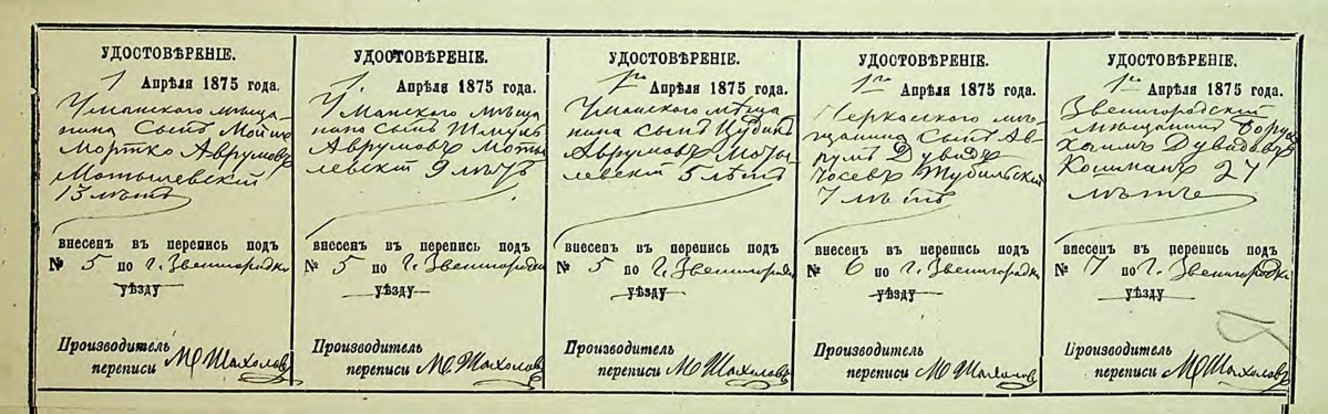 УДОСТОВѢРЕНІЕ.
1 Апрѣля 1875 года.
Уманскаго мѣща-
нина сынъ Мойше
Мортко Аврумовъ
Мотылевскій
13 лѣтъ
внесенъ въ перепись подъ
№ 5 по г. Звенигородкѣ
уѣзду
Производитель
переписи
УДОСТОВѢРЕНІЕ.
1. Апрѣля 1875 года.
Уманского мѣща
нина сынъ Шмуль
Аврумовъ Моты
левскій 9 лѣтъ
внесенъ въ перепись подъ
№ 5 по г. Звенигородкѣ
уѣзду
Производитель
переписи
УДОСТОВѢРЕНІЕ.
1го Апрѣля 1875 года.
Уманского мѣща
нина сынъ
Аврумовъ Моты
левскій 5 лѣтъ
внесенъ въ перепись подъ
№ 5 по г. Звенигородкѣ
уѣзду
Производитель
переписи
УДОСТОВѢРЕНІЕ.
1го Апрѣля 1875 года.
Черкасского мѣ-
щанина сынъ Ав-
румъ Дувидъ
Іосевъ
7 лѣтъ
внесенъ въ перепись подъ
№ 6 по г. Звенигородкѣ
уѣзду
Производитель
переписи
УДОСТОВѢРЕНІЕ.
1го Апрѣля 1875 года.
Звенигородскій
мѣщанинъ Борух
Хаимъ Дувидовъ
27
лѣтъ
внесенъ въ перепись подъ
№ 7 по г. Звенигородкѣ
уѣзду
Производитель
переписи